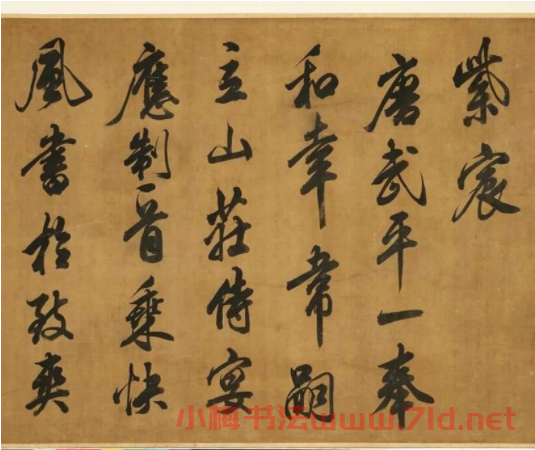 紫宸
唐武平一奉
和幸韋嗣
立山莊侍宴
應制一首乘快
風書於致爽
小梅书法www.7ld.net